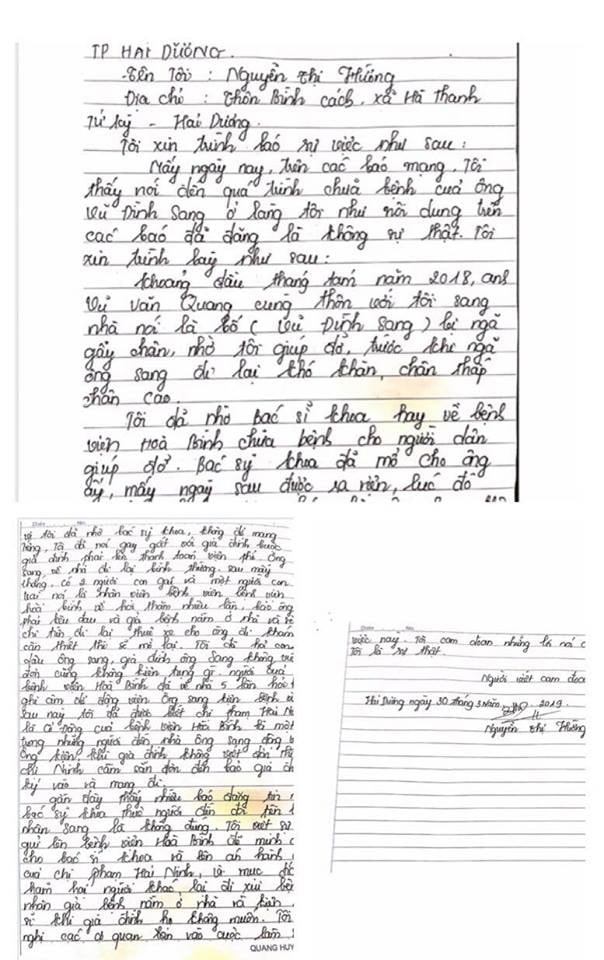 TP HẢI DƯƠNG.
-Tên Tôi : Nguyễn Thị Hường
Địa chỉ : Thôn Bình cách, xã Hà Thanh
Tứ kỳ - Hải Dương.
Tôi xin trình báo sự việc như sau :
Mấy ngày nay, trên các báo mạng. Tôi
thấy nói đến quá trình chưa bệnh của ông
Vũ Đình Sang ở làng tôi như nội dung trên
các báo đã đăng là không sự thật. Tôi
xin trình bày như sau :
khoảng đầu tháng tám năm 2018, anh
Vũ Văn Quang cùng thôn với tôi sang
nhà nói là bố ( Vũ Đình Sang ) bị ngã
gãy chân, nhờ tôi giúp đỡ, trước khi ngã
ông sang đi lại khó khăn, chân thấp
chân cao.
Tôi đã nhờ Bác sĩ khoa hay về bệnh
viện Hoà Bình chữa bệnh cho người dân
giúp đỡ. Bác sỹ khoa đã mổ cho ông
ấy, mấy ngày sau được ra viện, lúc đó
vì tôi đã nhờ bác sỹ khoa, không để mang
tiếng, Tôi đã nói gay gắt với gia đình buộc
gia đình phải lên thanh toán viện phí. Ông
sang về nhà đi lại bình thường. sau mấy
tháng, có 2 người con gái và một người con
trai nói là nhân viên bệnh viện bệnh viện
hoà bình về hỏi thăm nhiều lần, bảo ông
phải kêu đau và giả bệnh nằm ở nhà và
chi tiền đi lại thuê xe cho ông đi khám
cần thiết thì sẽ mổ lại. Tôi đã hỏi con
dâu ông sang, gia đình ông Sang không viết
đơn cũng không kiện tụng gì. người của
bệnh viện Hoà Bình đã về nhà 5 lần hỏi
ghi âm để động viên ông sang kiện bệnh
sau này tôi đã được biết chị Phạm Hải
là cổ đông của bệnh viện Hoà Bình là một
trong những người đến nhà ông sang động
ông kiện, khi gia đình không viết đơn thì
chị Ninh cầm sẵn đơn đến bảo gia
ký vào và mang đi.
gần đây thấy nhiều báo đăng tin
bác sỹ khoa thuê người dân đòi tiền
nhân sang là không đúng. Tôi viết
gửi lên bệnh viện Hoà Bình để minh
cho bác sĩ khoa và lên án hành
của chị Phạm Hải Ninh, vì mục
hãm hại người khác, lại đi xúi
nhân giả bệnh nằm ở nhà và kiện
sĩ khi gia đình họ không muốn. Tôi
nghị các cơ quan liên vào cuộc làm
QUANG HUY
việc này. Tôi cam đoan những lời nói
Tôi là sự thật.
Người viết cam đoan
Hải Dương ngày 30 tháng 3 năm 2019.
Nguyễn Thị Hường